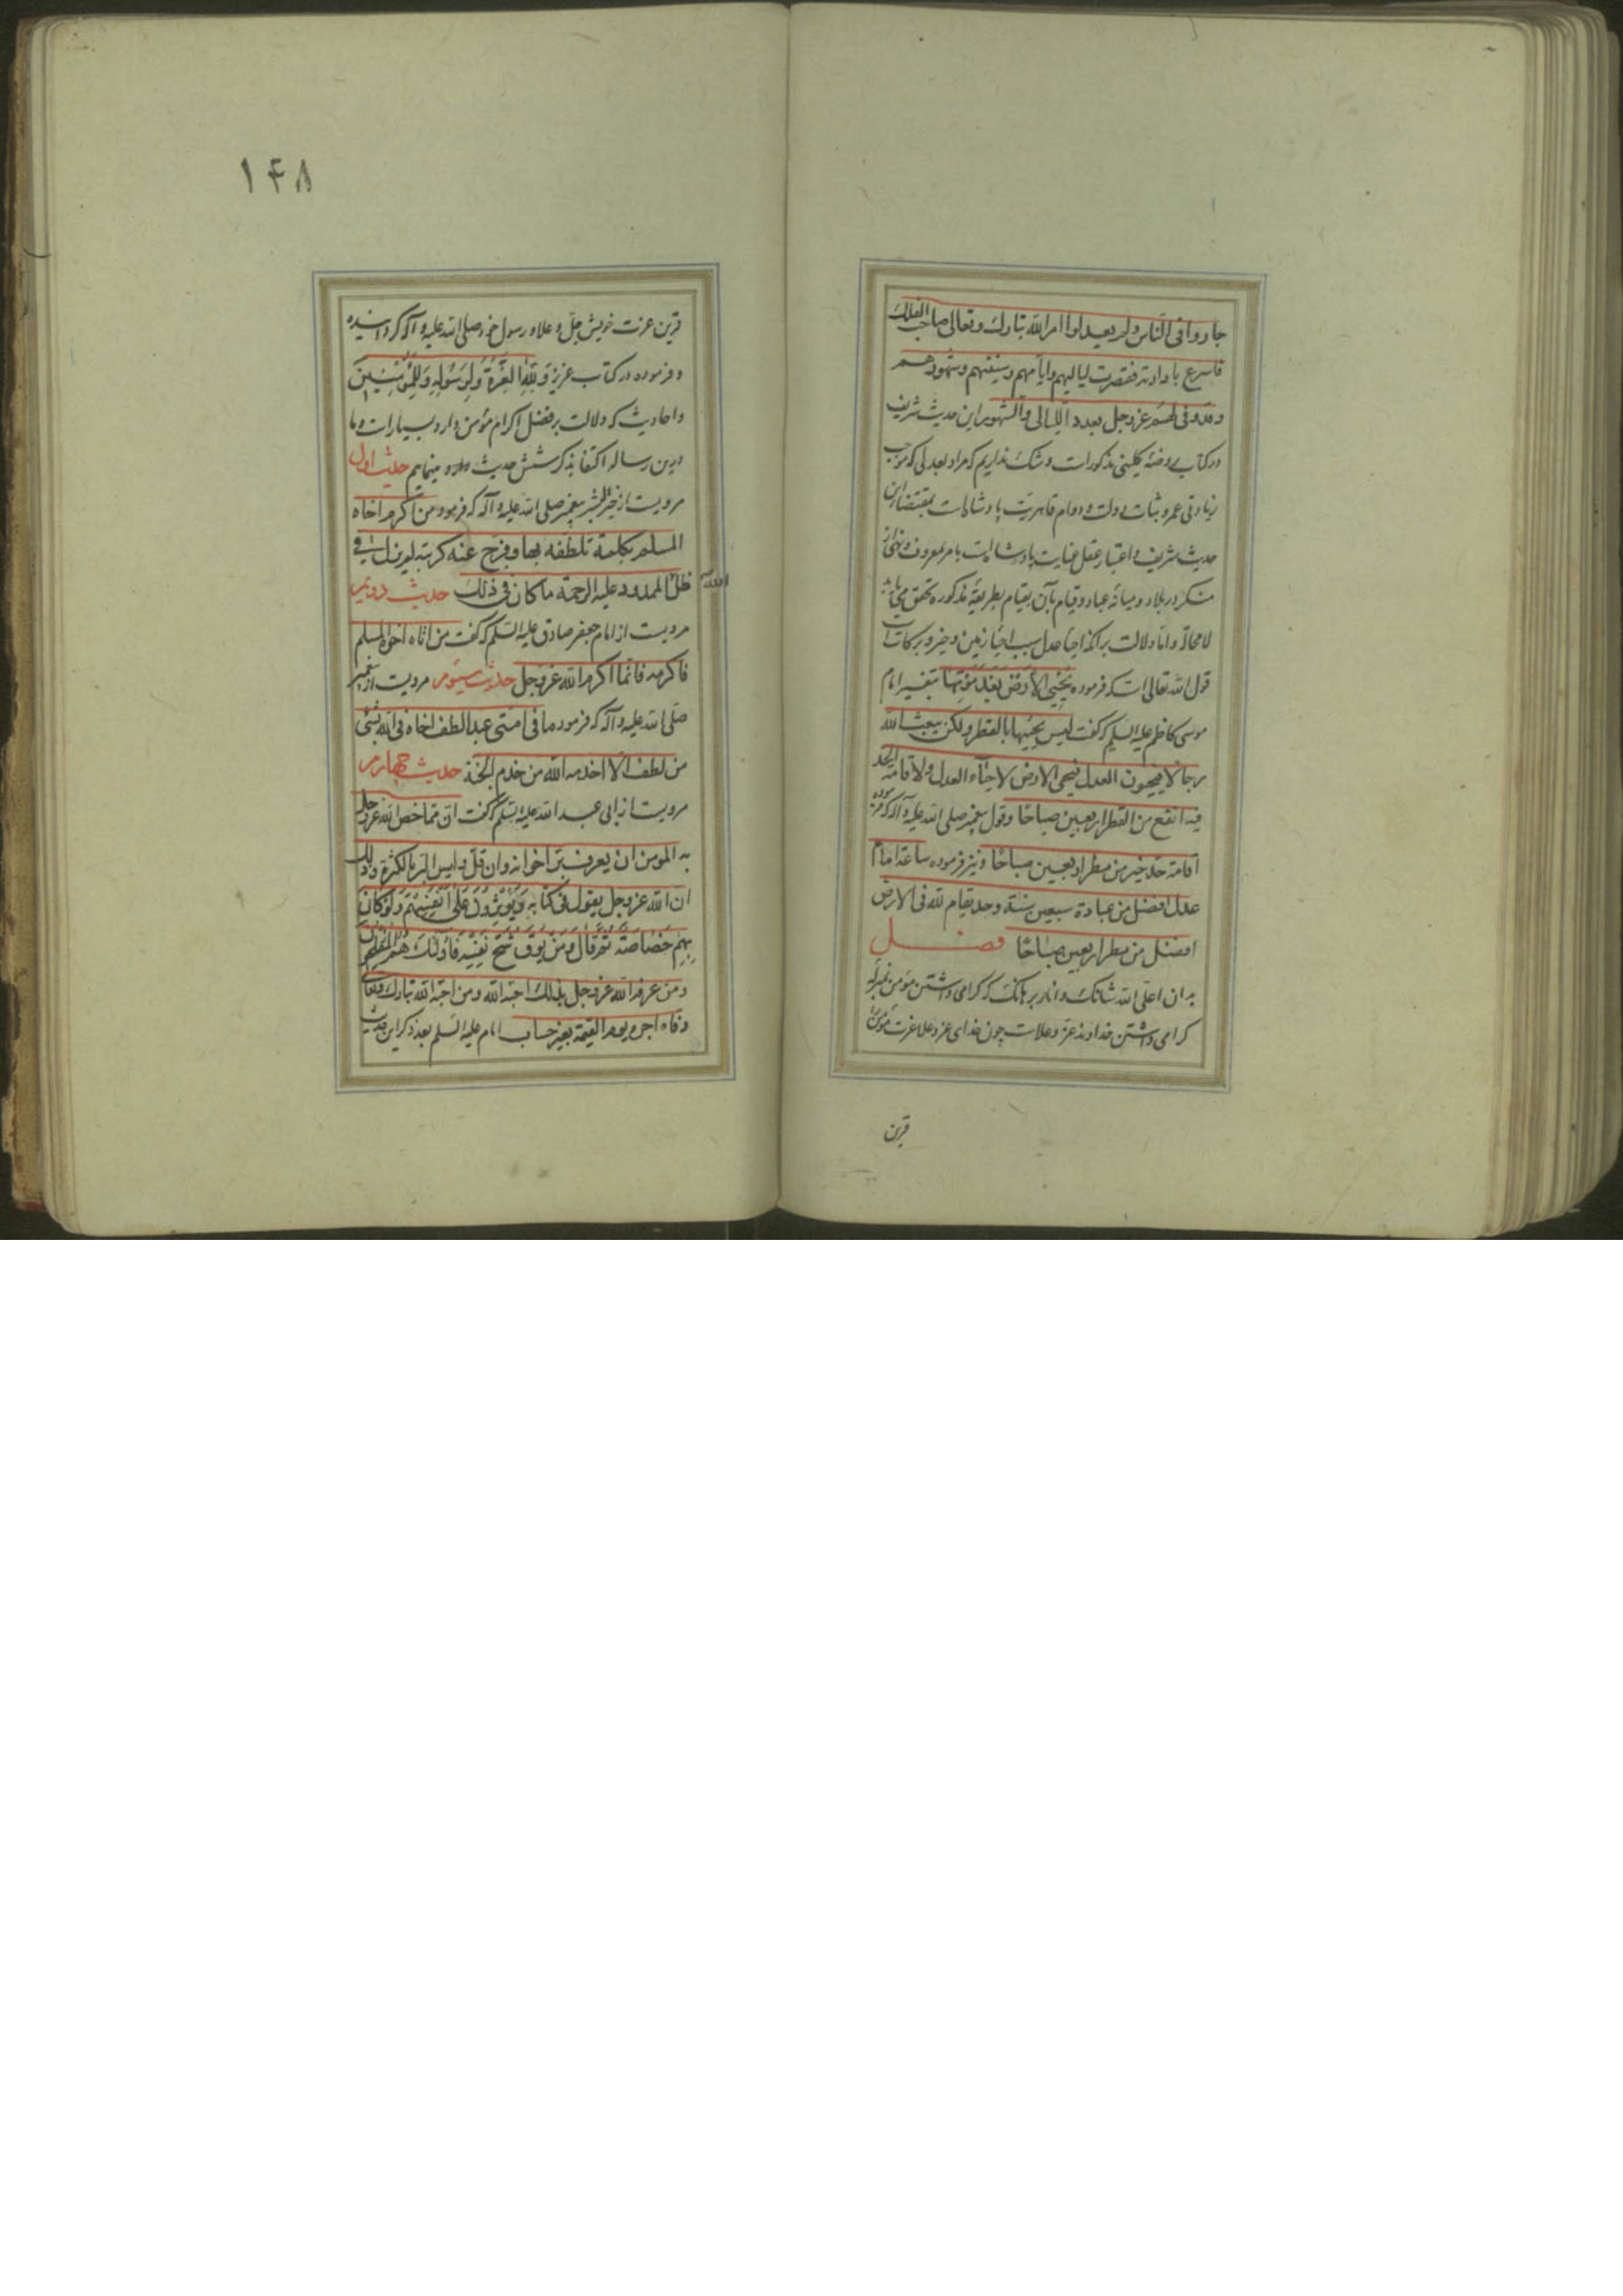 جاروا فی الناس ولم یعدلوا امر الله تبارک وتعالی صاحب الفلک
فاسرع بادارته فقصرت لیالیهم وایامهم وسنینهم وشهورهم
وقد وفی لهم عز وجل بعدد اللیالی والشهور این حدیث شریف
در کتاب روضهٔ کلینی مذکورات و شک نداریم که مراد بعدلی که موجب
زیادتی عمر و ثبات دولت و دوام قاهریت پادشاهانست بمقتضای این
حدیث شریف و اعتبار عقل عنایت پادشاهانست بامر بمعروف و نهی از
منکر در بلاد و میانهٔ عباد و قیام بآن بقیام بطریقهٔ مذکوره تحقق می یابد
لا محاله و اما دلالت بر آنکه احیا عدل سبب احیا زمین و خیر و برکاتست
قول الله تعالی است که فرموده یُحْیِی الْاَرْضَ بَعْدَ مَوْتِها بتفسیر امام
موسی کاظم علیه السلم که گفت لیس یحییها بالقطر ولکن یبعث الله
رجالا فیحیون العدل فتحیی الارض لاحیاء العدل ولاقامة الحد
فیه انفع من القطر اربعین صباحًا و قول پیغمبر صلی الله علیه وآله که فرموده
اقامة حد خیر من مطر اربعین صباحًا و نیز فرموده ساعة امام
عدل افضل من عبادة سبعین سنة وحد یقام لله فی الارض
افضل من مطر اربعین صباحًا فصــل
بدان اعلی الله شانک و انار برهانک که گرامی داشتن مؤمن بمنزله
گرامی داشتن خداوند عز و علاست چون خدای عز و علا عزت مؤمن
قرین
۱۴۸
قرین عزت خویش جل و علا و رسول خود صلی الله علیه وآله گردانیده
و فرموده در کتاب عزیز وَلِلّهِ الْعِزَّةُ وَلِرَسُولِهِ وَلِلْمُؤْمِنِینَ
و احادیث که دلالت بر فضل اکرام مؤمن دارد بسیارات و ما
درین رساله اکتفا بذکر شش حدیث مینمایم حدیث اول
مرویست از خیر البشر پیغمبر صلی الله علیه وآله که فرمود من اکرم اخاه
المسلم بکلمة تلطفه بها وفرج عنه کربته لم یزل فی
ظل الله الممدود علیه الرحمة ما کان فی ذلک حدیث دویم
مرویست از امام جعفر صادق علیه السلم که گفت من اتاه اخوه المسلم
فاکرمه فانما اکرم الله عز وجل حدیث سیوم مرویست از پیغمبر
صلی الله علیه وآله که فرموده ما فی امتی عبد الطف اخاه فی الله بشئ
من لطف الا اخدمه الله من خدم الجنة حدیث چهارم
مرویست از ابی عبد الله علیه السلم که گفت ان مما خص الله عز وجل
به المومن ان یعرفه بر اخوانه وان قل ولیس البر بالکثرة وذلک
ان الله عز وجل یقول فی کتابه وَیُؤْثِرُونَ عَلی اَنْفُسِهِمْ وَلَوْ کانَ
بِهِمْ خَصاصَةٌ ثم قال وَمَنْ یُوقَ شُحَّ نَفْسِهِ فَاُولئِکَ هُمُ الْمُفْلِحُونَ
ومن عرفه الله عز وجل بذلک احبه الله ومن احبه الله تبارک وتعالی
وفاه اجره یوم القیمة بغیر حساب امام علیه السلم بعد ذکر این حدیث